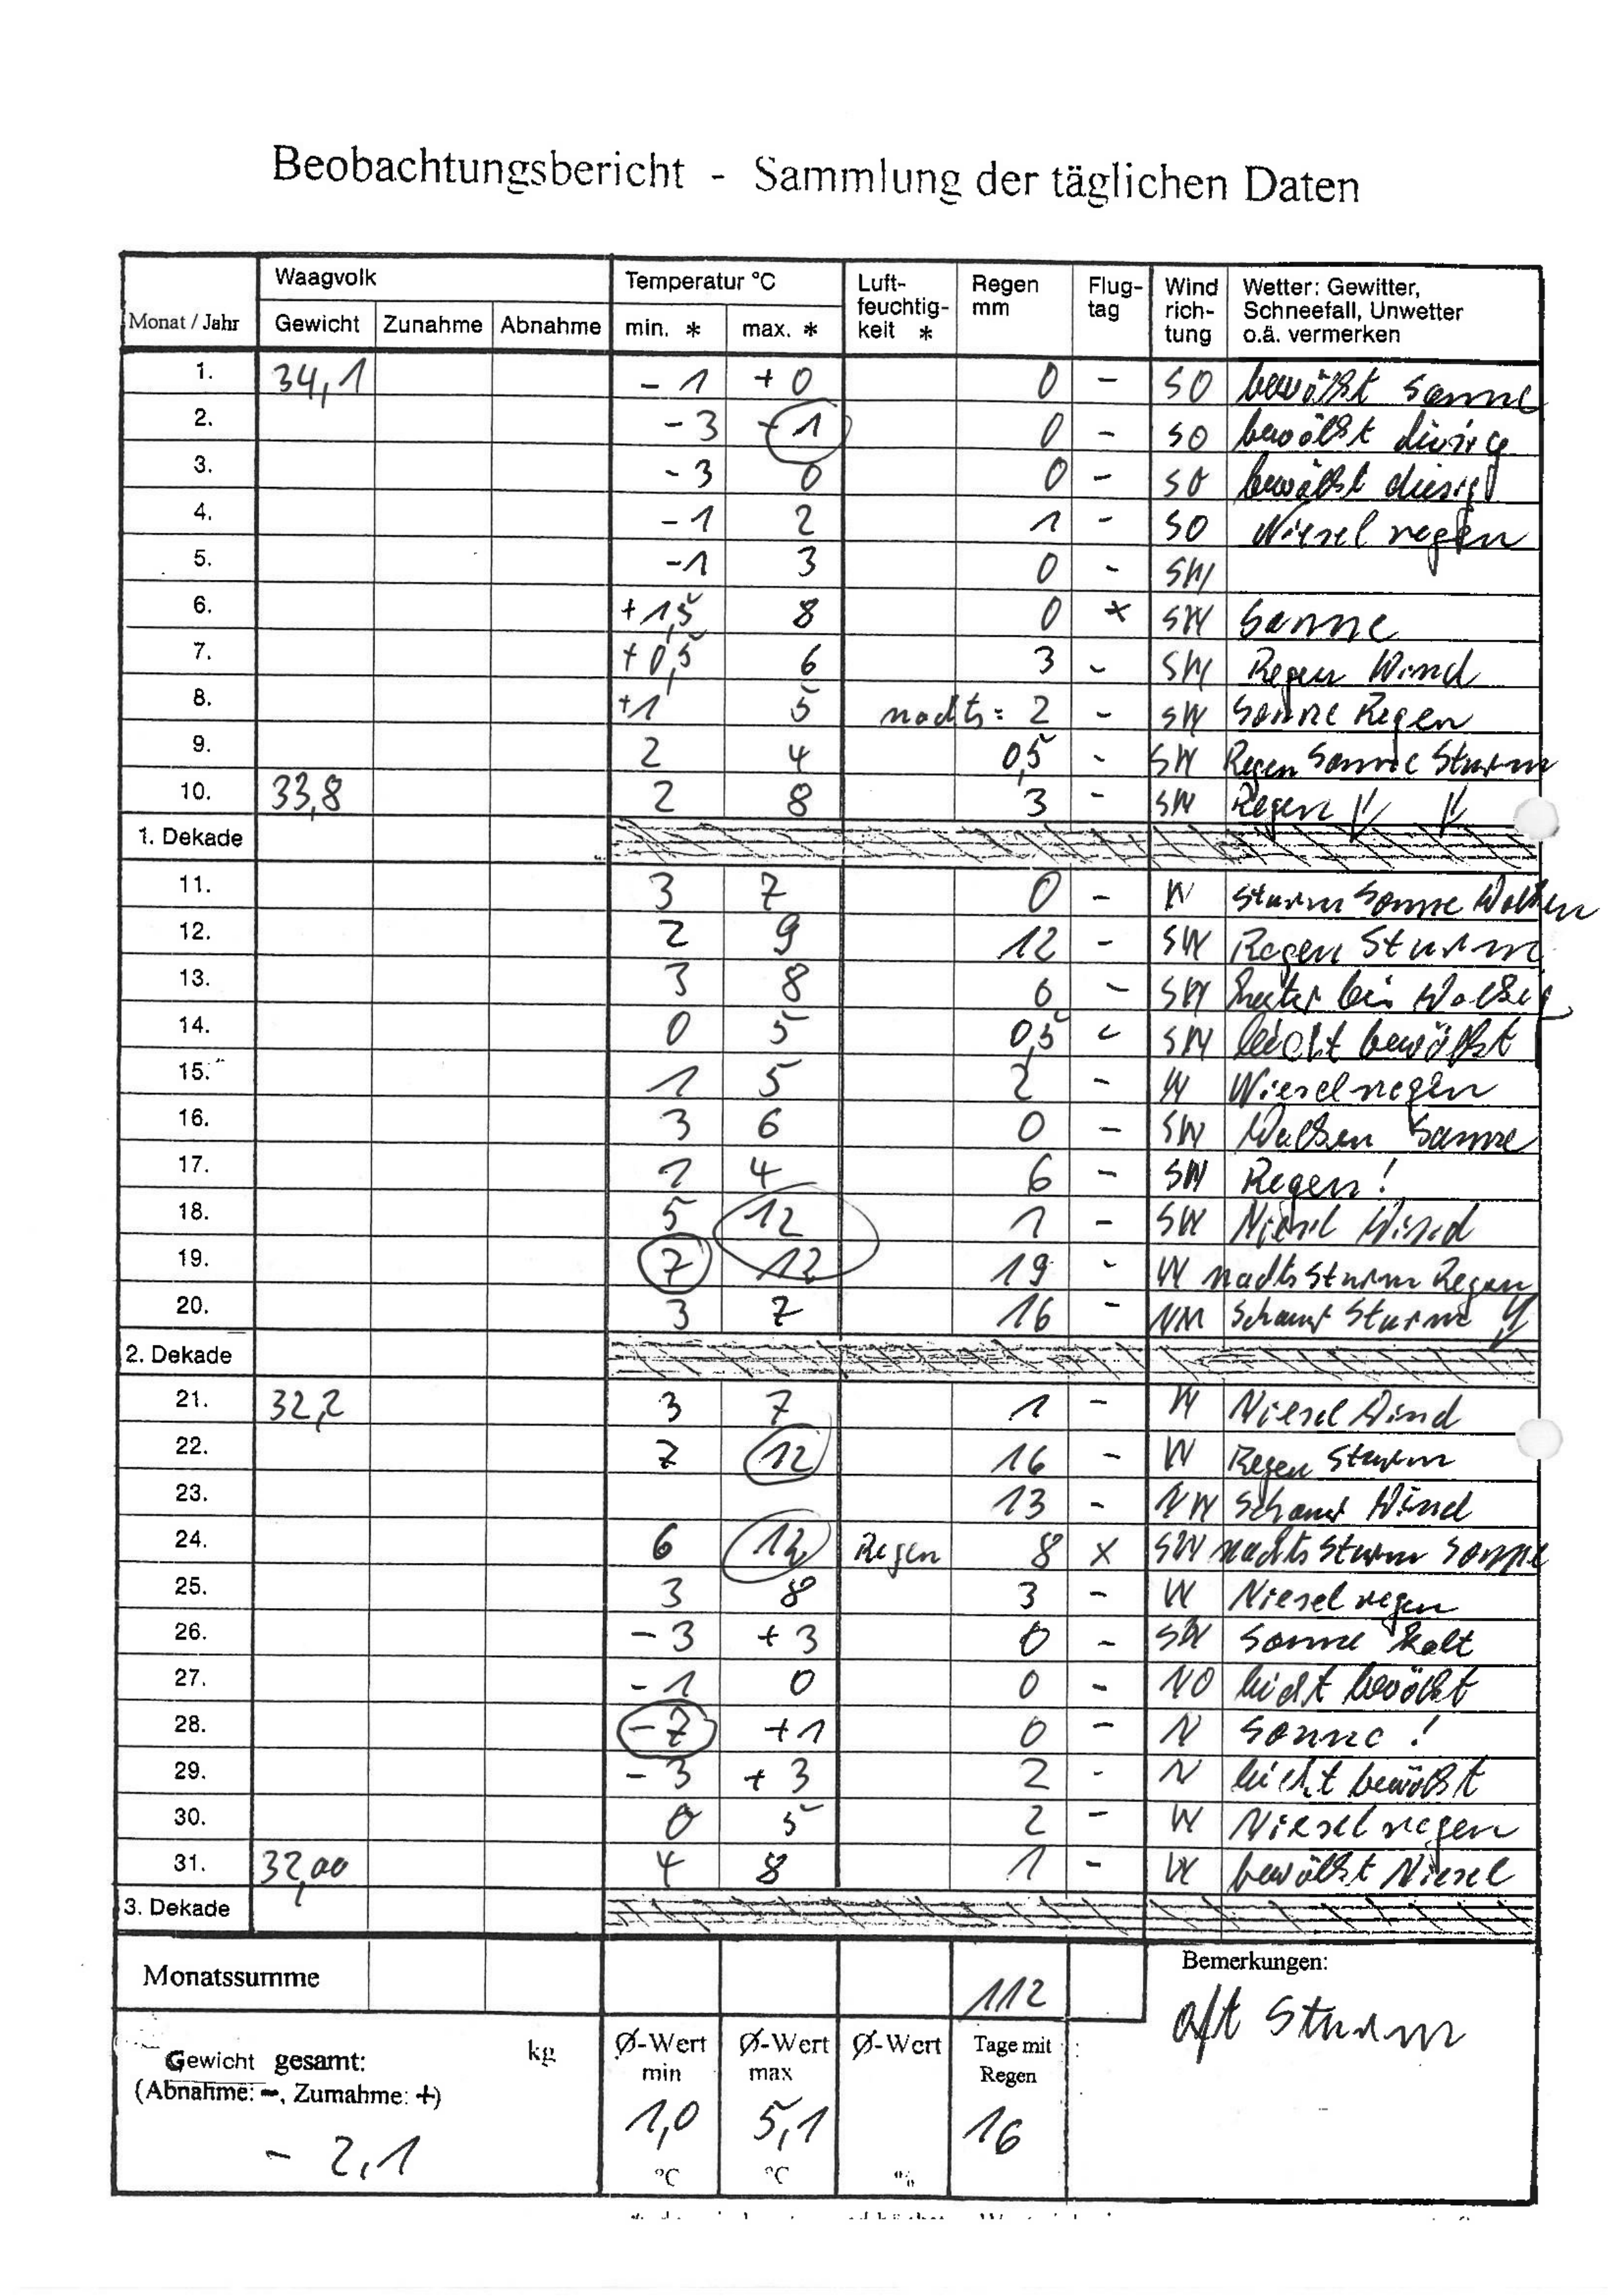 Beobachtungsbericht - Sammlung der täglichen Daten
Monat / Jahr Waagvolk Temperatur °C Luft-feuchtig-keit * Regen mm Flug-tag Wind rich-tung Wetter: Gewitter, Schneefall, Unwetter o.ä. vermerken
Gewicht Zunahme Abnahme min. * max. *
1. 34,1 - 1 + 0 0 - SO bewölkt Sonne
2. - 3 - 1 0 - SO bewölkt diesig
3. - 3 0 0 - SO bewölkt diesig
4. - 1 2 1 - SO Niesel regen
5. -1 3 0 - SW
6. + 1,5 8 0 x SW Sonne
7. + 0,5 6 3 - SW Regen Wind
8. +1 5 nachts = 2 - SW Sonne Regen
9. 2 4 0,5 - SW Regen Sonne Sturm
10. 33,8 2 8 3 - SW Regen
1. Dekade
11. 3 7 0 - W Sturm Sonne Wolken
12. 2 9 12 - SW Regen Sturm
13. 3 8 0 - SW heiter bis Wolkig
14. 0 5 0,5 - SW leicht bewölkt
15. 1 5 2 - W Nieselregen
16. 3 6 0 - SW Wolken Sonne
17. 1 4 6 - SW Regen !
18. 5 12 1 - SW Niesel Wind
19. 7 12 19 - W nachts Sturm Regen
20. 3 7 16 - NW Schauer Sturm
2. Dekade
21. 32,2 3 7 1 - W Niesel Wind
22. 7 12 16 - W Regen Sturm
23. 13 - NW Schauer Wind
24. 6 12 Regen 8 x SW nachts Sturm Sonne
25. 3 8 3 - W Niesel regen
26. - 3 + 3 0 - SW Sonne kalt
27. - 1 0 0 - NO leicht bewölkt
28. - 7 + 1 0 - N Sonne !
29. - 3 + 3 2 - N leicht bewölkt
30. 0 5 2 - W Niesel regen
31. 32,00 4 8 1 - W bewölkt Niesel
3. Dekade
Monatssumme 112
Bemerkungen:
oft Sturm
Gewicht gesamt: kg
(Abnahme: -, Zumahme: +)
- 2,1
Ø-Wert min Ø-Wert max Ø-Wert Tage mit Regen
1,0 5,1 16
°C °C %